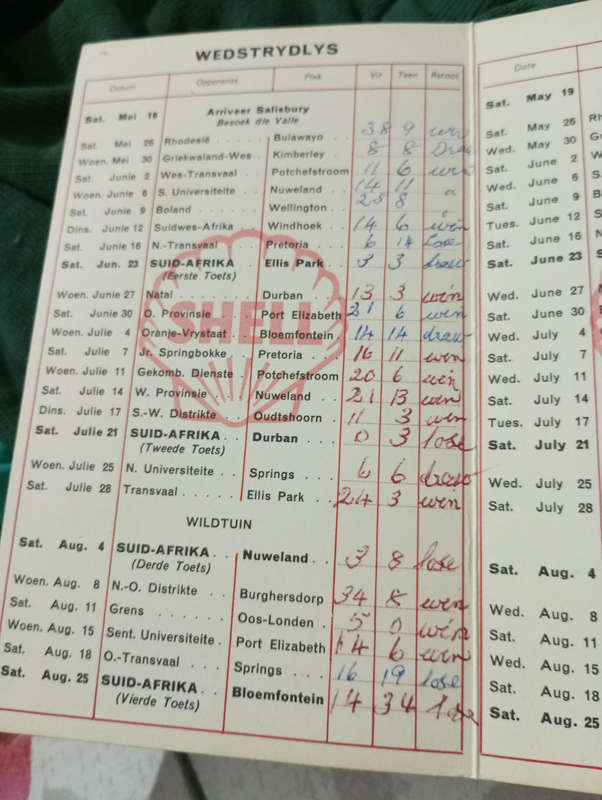 WEDSTRYDLYS
Datum Opponente Plek Vir Teen
Sat. Mei 16 Arriveer Salisbury
Besoek die Valle
Sat. Mei 26 Rhodesië Bulawayo 38 9 win
Woen. Mei 30 Griekwaland-Wes Kimberley 8 8 Draw
Sat. Junie 2 Wes-Transvaal Potchefstroom 11 6 win
Woen. Junie 6 S. Universiteite Nuweland 14 11
Sat. Junie 9 Boland Wellington 25 8
Dins. Junie 12 Suidwes-Afrika Windhoek 14 6 win
Sat. Junie 16 N.-Transvaal Pretoria 6 14 lose
Sat. Jun. 23 SUID-AFRIKA Ellis Park 3 3 draw
(Eerste Toets)
Woen. Junie 27 Natal Durban 13 3 win
Sat. Junie 30 O. Provinsie Port Elizabeth 21 6 win
SHELL
Woen. Julie 4 Oranje-Vrystaat Bloemfontein 14 14 draw
Sat. Julie 7 Jr. Springbokke Pretoria 16 11 win
Woen. Julie 11 Gekomb. Dienste Potchefstroom 20 6 win
Sat. Julie 14 W. Provinsie Nuweland 21 13 win
Dins. Julie 17 S.-W. Distrikte Oudtshoorn 11 3 win
Sat. Julie 21 SUID-AFRIKA Durban 0 3 lose
(Tweede Toets)
Woen. Julie 25 N. Universiteite Springs 6 6 draw
Sat. Julie 28 Transvaal Ellis Park 24 3 win
WILDTUIN
Sat. Aug. 4 SUID-AFRIKA Nuweland 3 8 lose
(Derde Toets)
Woen. Aug. 8 N.-O. Distrikte Burghersdorp 34 8 win
Sat. Aug. 11 Grens Oos-Londen 5 0 win
Woen. Aug. 15 Sent. Universiteite Port Elizabeth 14 6 win
Sat. Aug. 18 O.-Transvaal Springs 16 19 lose
Sat. Aug. 25 SUID-AFRIKA Bloemfontein 14 34 lose
(Vierde Toets)
Date
Sat. May 19
Sat. May 26
Wed. May 30
Sat. June 2
Wed. June 6
Sat. June 9
Tues. June 12
Sat. June 16
Sat. June 23
Wed. June 27
Sat. June 30
Wed. July 4
Sat. July 7
Wed. July 11
Sat. July 14
Tues. July 17
Sat. July 21
Wed. July 25
Sat. July 28
Sat. Aug. 4
Wed. Aug. 8
Sat. Aug. 11
Wed. Aug. 15
Sat. Aug. 18
Sat. Aug. 25